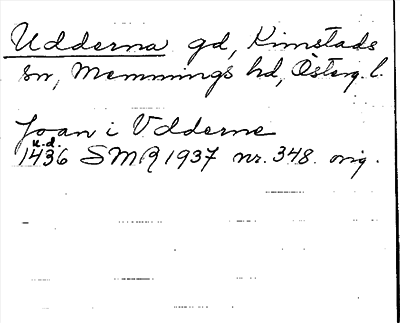 Udderna gd, Kimstads
sn, Memmings hd, Österg. l.
Joan i Vdderne
u.d.
1436 SMR 1937 nr. 348. orig.